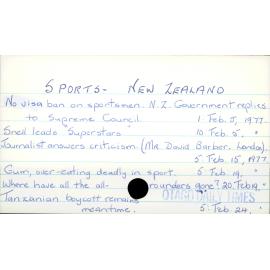 SPORTS - NEW ZEALAND
No visa ban on sportsmen. N.Z. Government replies
to Supreme Council. 1 Feb. 5, 1977.
Snell leads "Superstars" 10 Feb. 5, "
Journalist answers criticism. (Mr. David Barber, London).
5 Feb. 15, 1977.
Gum, over-eating deadly in sport. 5 Feb. 19, "
Where have all the all-rounders gone? 20 Feb 19, "
OTAGO DAILY TIMES
Tanzanian boycott remains
meantime. 5 Feb 24, "